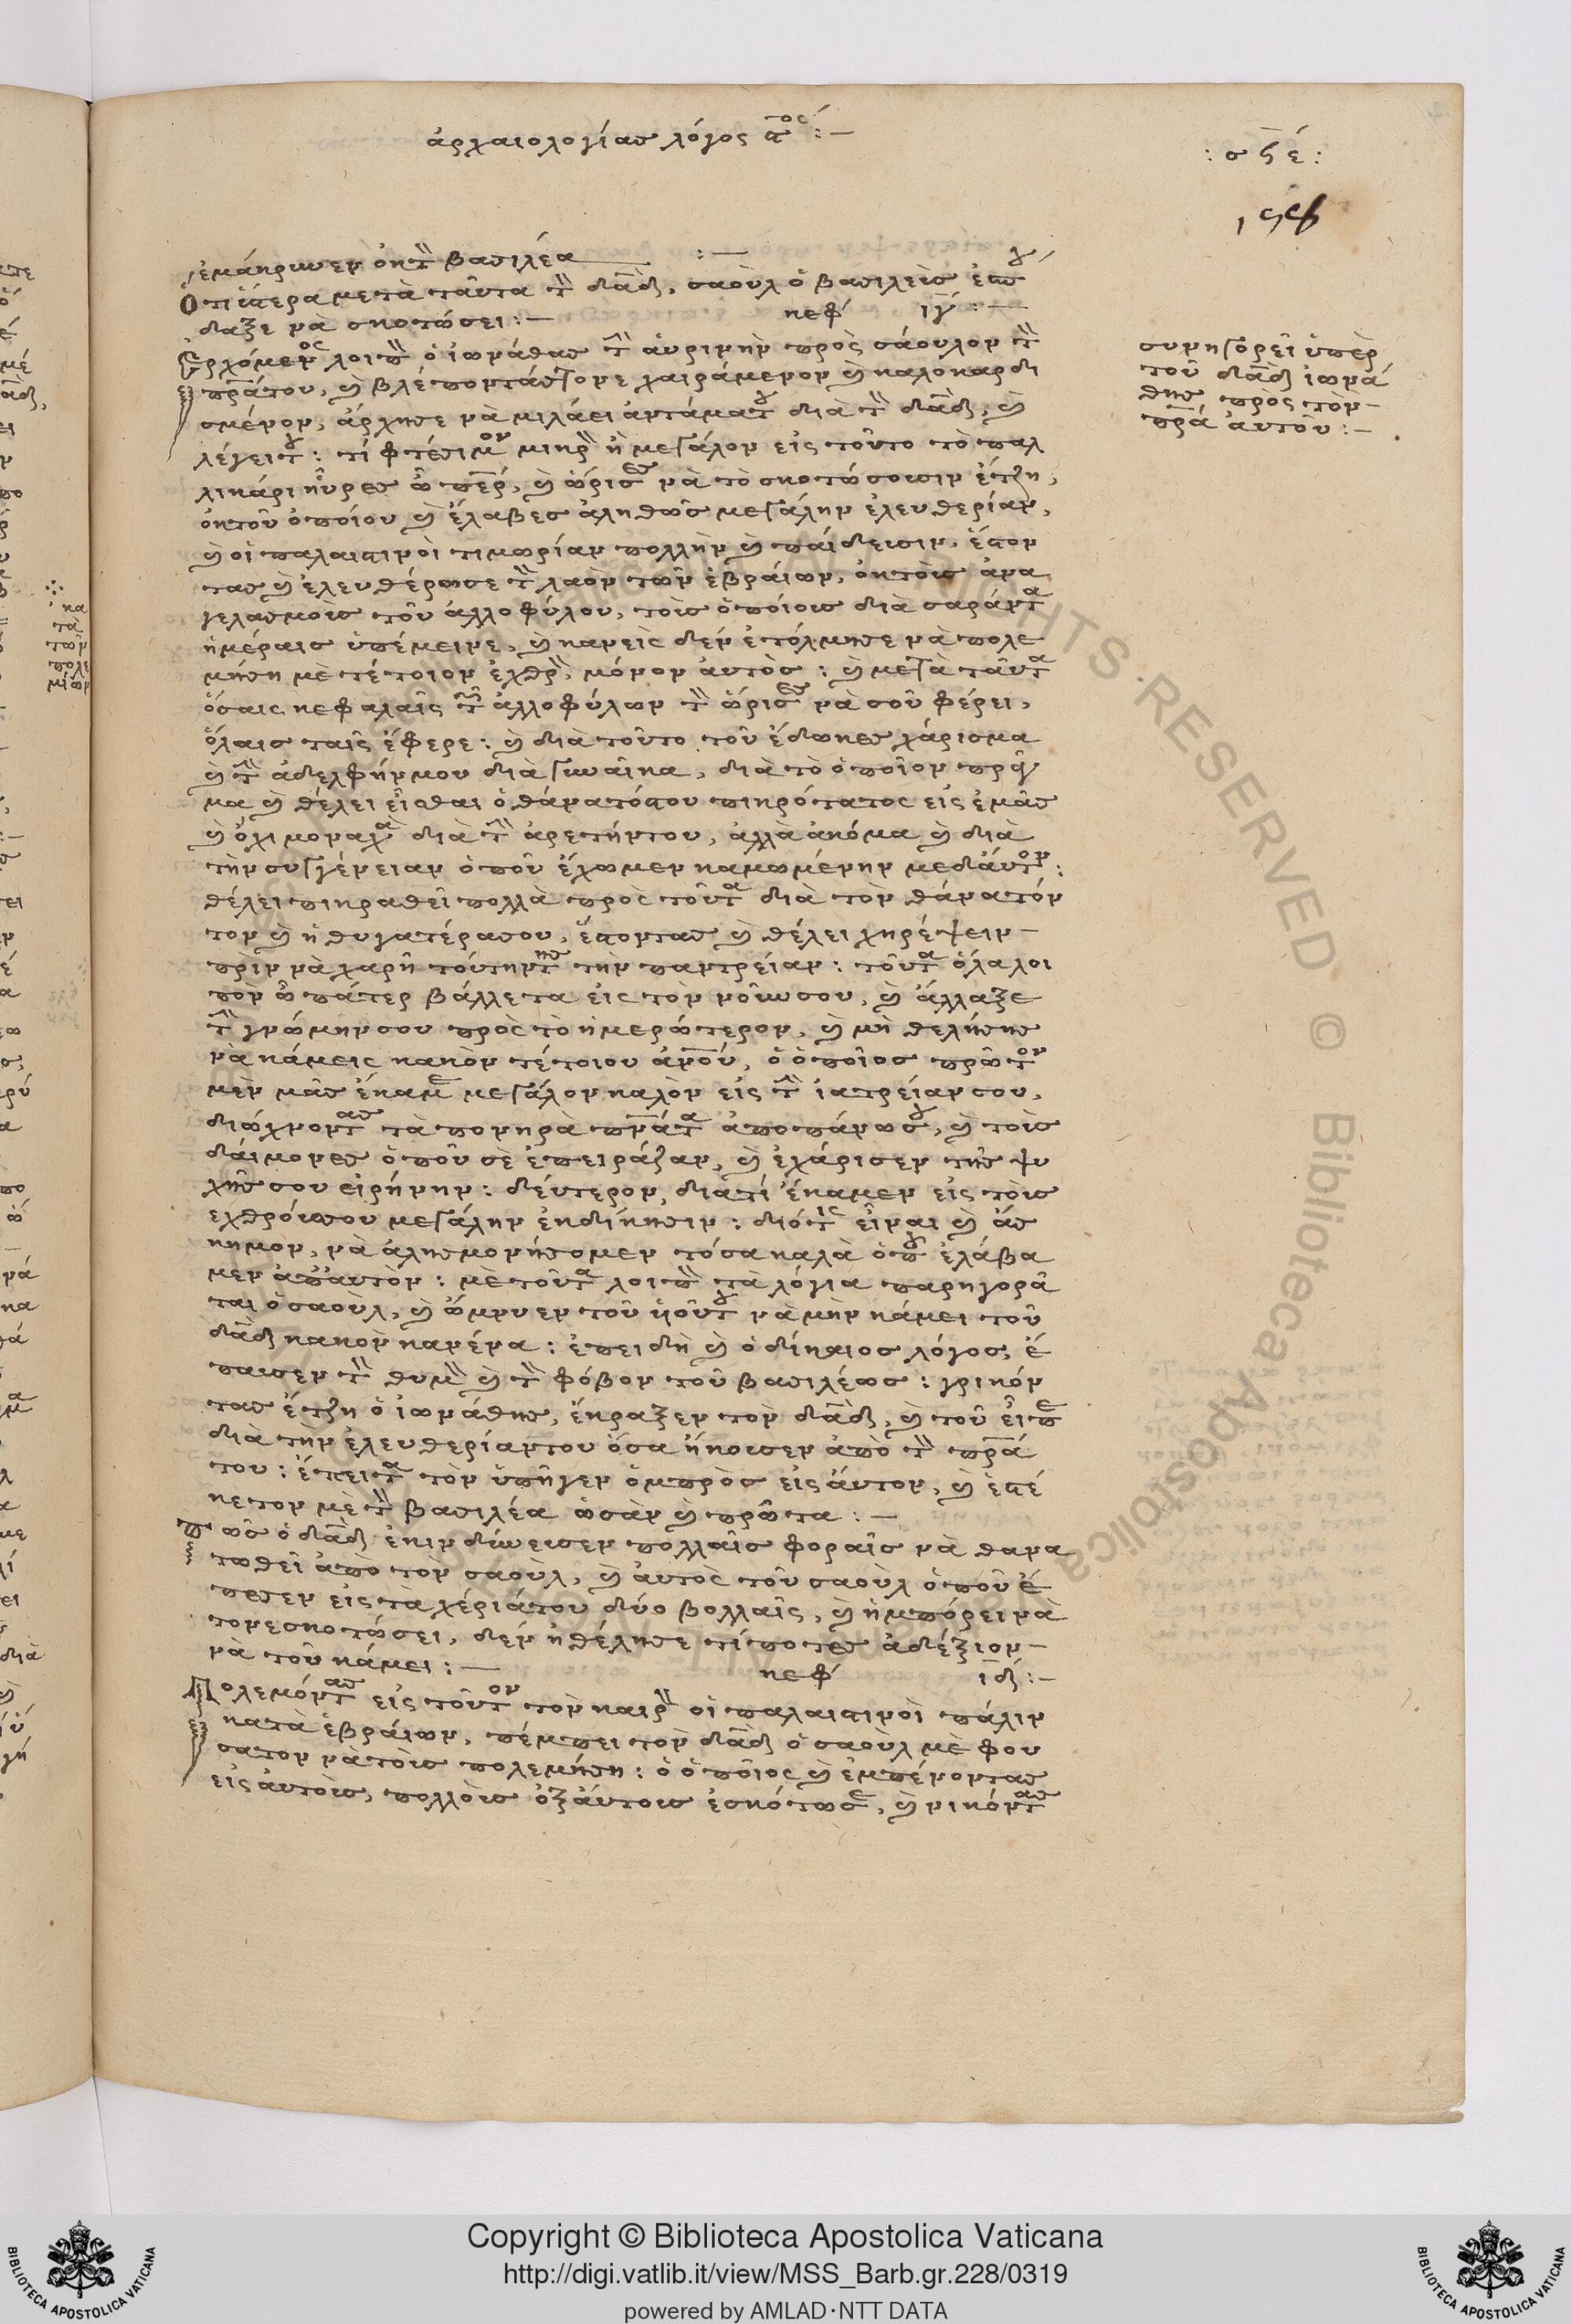 ἀρχαιολογίας λόγος ϛος΄ :—
: σϟέ :
ἐμάκρυνεν ἐκ τὸν βασιλέα :—
Ὅτι ὕστερα μετὰ ταῦτα τὸν δαδ, σαοὺλ ὁ βασιλεὺς
νὰ σκοτώσει :— κεφ ιγ΄ :—
Ἐρχόμενος λοιπὸν ὁ ἰωνάθας τὴν αὐρινὴν πρὸς σάουλον τὸν
πρα̅του, καὶ βλέποντάς τονε χαιράμενον καὶ καλοκαρδι
σμένον, ἄρχησε νὰ μιλάει ἀντάμα του διὰ τὸν δαδ, καὶ
λέγει του : τί φτέσιμον μικρὸν ἢ μεγάλον εἰς τοῦτο τὸ παλ
λικάρι ηὗρες ὦ περ, καὶ ὥρισες νὰ τὸ σκοτώσουσιν ἔτζη,
ἐκ τοῦ ὁποίου καὶ ἔλαβες ἀληθῶς μεγάλην ἐλευθερίαν,
καὶ οἱ παλαιστινοὶ τιμωρίαν πολλὴν καὶ παίδευσιν, ἔστον
τας καὶ ἐλευθέρωσε τὸν λαὸν τῶν ἑβραίων, ἐκ τοὺς ἀνα
γελασμοὺς τοῦ ἀλλοφύλου, τοὺς ὁποίους διὰ σαράντα
ἡμέραις ὑπέμεινε, καὶ κανεὶς δὲν ἐτόλμησε νὰ πολε
μήση μὲ τέτοιον ἐχθρὸν, μόνον αὐτὸς : καὶ μετὰ ταῦτα
ὅσαις κεφαλαῖς τῶν ἀλλοφύλων τὸν ὥρισες νὰ σοῦ φέρει,
ὅλαις ταῖς ἔφερε : καὶ διὰ τοῦτο τοῦ ἔδωκες χάρισμα
καὶ τὴν ἀδελφήν μου διὰ γυναῖκα, διὰ τὸ ὁποῖον πρᾶγ
μα καὶ θέλει εἶσθαι ὁ θάνατός του πικρότατος εἰς ἐμᾶς
καὶ ὄχι μοναχὰ διὰ τὴν ἀρετήν του, ἀλλὰ ἀκόμα καὶ διὰ
τὴν συγγένειαν ὁποῦ ἔχωμεν καμωμένην μεδαύτον :
θέλει πικραθεῖ πολλὰ πρὸς τοῦτα διὰ τὸν θάνατόν
του καὶ ἡ θυγατέρα σου, ἔστοντας καὶ θέλει χηρέψειν —
πρὶν νὰ χαρῆ τούτην της τὴν παντρείαν : τοῦτα ὅλα λοι
πὸν ὦ πάτερ βάλλε τα εἰς τὸν νοῦν σου, καὶ ἄλλαξε
τὴν γνώμην σου πρὸς τὸ ἡμερώτερον, καὶ μὴ θελήσης
νὰ κάμεις κακὸν τέτοιου ἀνού, ὁ ὁποῖος πρῶτον
μὲν μᾶς ἔκαμε μεγάλον καλὸν εἰς τὴν ἰατρείαν σου,
διώχνοντας τὰ πονηρὰ πνάτα ἀποπάνω σου, καὶ τοὺς
δαίμονες ὁποῦ σὲ ἐπειράζαν, καὶ ἐχάρισεν τῆς ψυ
χῆς σου εἰρήνην : δεύτερον, διατί ἔκαμεν εἰς τοὺς
ἐχθρούς σου μεγάλην ἐκδίκησιν : διότις εἶναι καὶ ἄσ
κημον, νὰ ἀλησμονήσομεν τόσα καλὰ ὁποῦ ἐλάβα
μεν ἀπαυτὸν : μὲ τοῦτα λοιπὸν τὰ λόγια παρηγορᾶ
ται ὁ σαοὺλ, καὶ ὤμνυεν τοῦ ὑιοῦ του νὰ μὴν κάμει τοῦ
δαδ κακὸν κανένα : ἐπειδὴ καὶ ὁ δίκαιος λόγος, ἔ
παυσεν τὸν θυμὸν καὶ τὸν φόβον τοῦ βασιλέως : γρικόν
τας ἔτζη ὁ ἰωνάθης, ἔκραξεν τὸν δαδ, καὶ τοῦ εἶπε
διὰ τὴν ἐλευθερίαν του ὅσα ἤκουσεν ἀπὸ τὸν πρά
του : ἔπειτα τὸν ὑπῆγεν ὀμπρὸς εἰς αὐτον, καὶ ἐστέ
κετον μὲ τὸν βασιλέα ὡσὰν καὶ πρῶτα :—
Πῶς ὁ δαδ ἐκινδύνευσεν πολλαῖς φοραῖς νὰ θανα
τωθεῖ ἀπὸ τὸν σαοὺλ, καὶ αὐτὸς τοῦ σαοὺλ ὁποῦ ἔ
πεσεν εἰς τὰ χέριά του δύο βολλαῖς, καὶ ἠμπόρει νὰ
τονε σκοτώσει, δὲν ἠθέλησε τίποτες ἀδέξιον —
νὰ τοῦ κάμει :— κεφ ιδ :—
Πολεμόντας εἰς τοῦτον τὸν καιρὸν οἱ παλαιστινοὶ πάλιν
κατὰ ἑβραίων, πέμπει τὸν δαδ ὁ σαοὺλ μὲ φου
σατον νὰ τοὺς πολεμήση : ὁ ὁποῖος καὶ ἐμπένοντας
εἰς αὐτοὺς, πολλοὺς ἐξαύτους ἐσκότωσε, καὶ νικόντας
συνηγορεῖ ὑπὲρ
τοῦ δαδ ἰωνά
θης πρὸς τὸν —
πρά αὐτοῦ :—
Copyright © Biblioteca Apostolica Vaticana
http://digi.vatlib.it/view/MSS_Barb.gr.228/0319
powered by AMLAD·NTT DATA